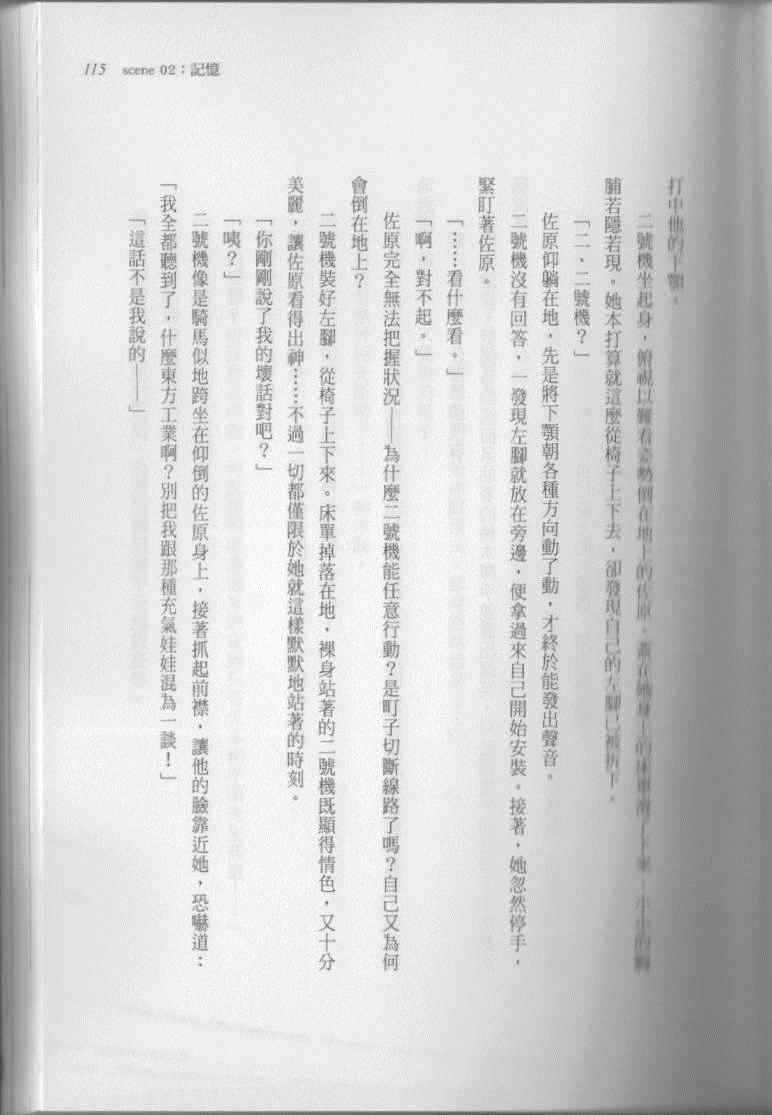 115 scene 02：記憶
打中他的下顎。
二號機坐起身，俯視以難看姿勢倒在地上的佐原。蓋在她身上的床單滑了下來，
脯若隱若現。她本打算就這麼從椅子上下去，卻發現自己的左腳已被拆下。
「二、二號機？」
佐原仰躺在地，先是將下顎朝各種方向動了動，才終於能發出聲音。
二號機沒有回答，一發現左腳就放在旁邊，便拿過來自己開始安裝。接著，她忽然停手，
緊盯著佐原。
「……看什麼看。」
「啊，對不起。」
佐原完全無法把握狀況——為什麼二號機能任意行動？是町子切斷線路了嗎？自己又為何
會倒在地上？
二號機裝好左腳，從椅子上下來。床單掉落在地，裸身站著的二號機既顯得情色，又十分
美麗，讓佐原看得出神……不過一切都僅限於她就這樣默默地站著的時刻。
「你剛剛說了我的壞話對吧？」
「咦？」
二號機像是騎馬似地跨坐在仰倒的佐原身上，接著抓起前襟，讓他的臉靠近她，恐嚇道：
「我全都聽到了，什麼東方工業啊？別把我跟那種充氣娃娃混為一談！」
「這話不是我說的——」